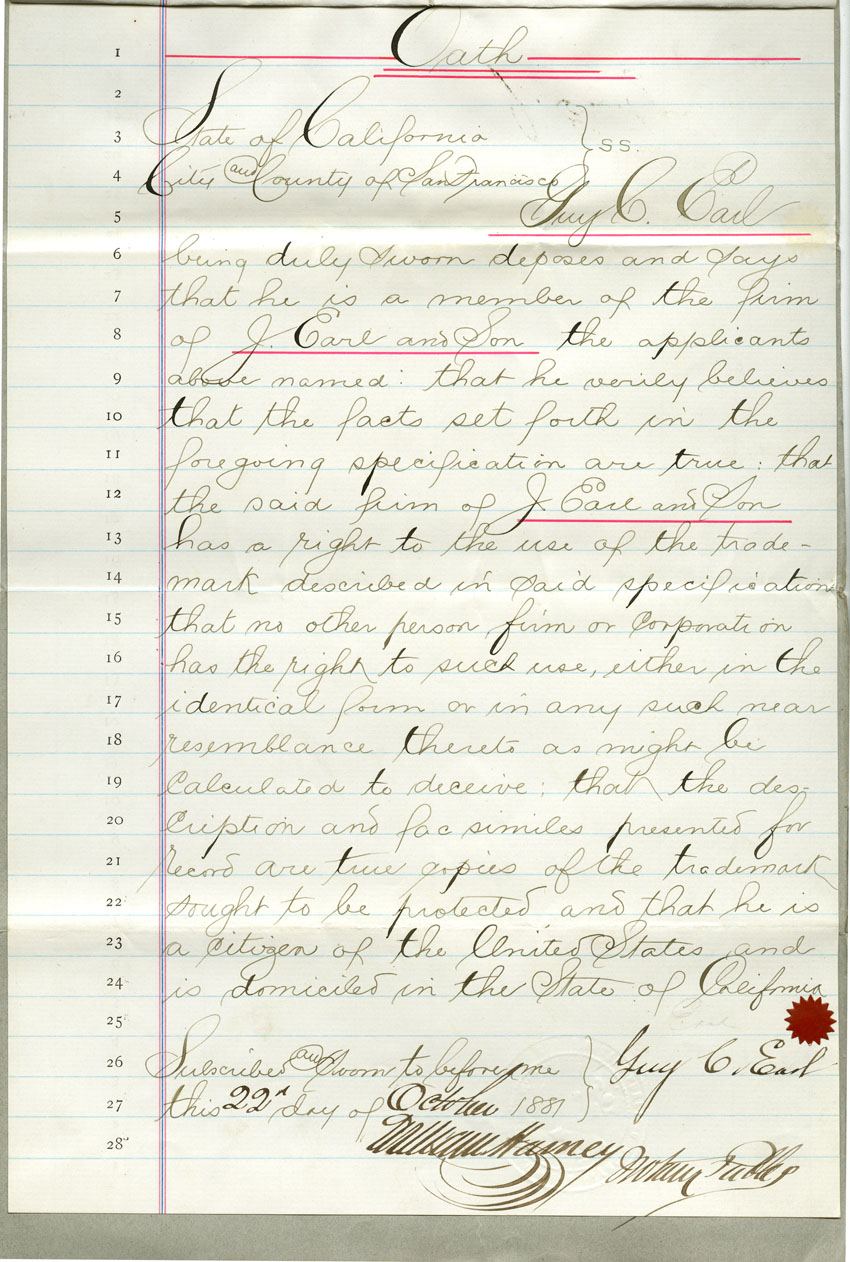 1 Oath
2
3 State of California } ss.
4 City and County of San Francisco
5 Guy C. Earl
6 being duly sworn deposes and says
7 that he is a member of the firm
8 of J. Earl and Son the applicants
9 above named: that he verily believes
10 that the facts set forth in the
11 foregoing specification are true: that
12 the said firm of J. Earl and Son
13 has a right to the use of the trade-
14 mark described in said specification
15 that no other person firm or corporation
16 has the right to such use, either in the
17 identical form or in any such near
18 resemblance thereto as might be
19 calculated to deceive; that the des-
20 cription and fac similes presented for
21 record are true copies of the trademark
22 sought to be protected and that he is
23 a citizen of the United States and
24 is domiciled in the State of California
25
26 Subscribed and Sworn to before me } Guy C. Earl
27 this 22d day of October 1881
28 William Harney Notary Public